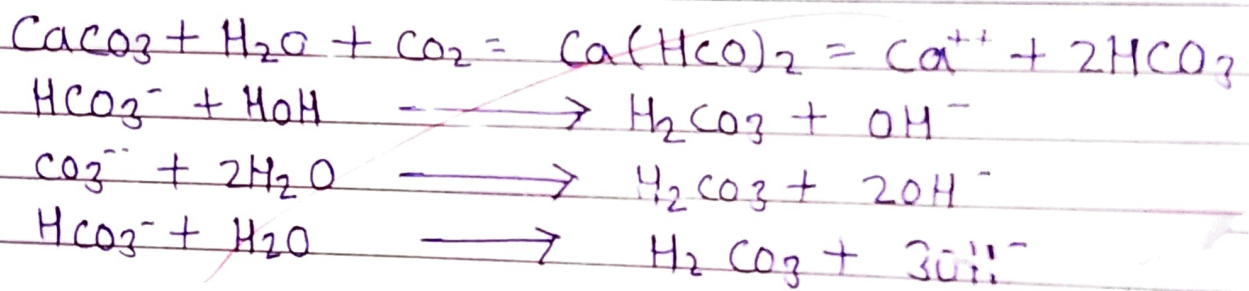 CaCO3 + H2O + CO2 = Ca(HCO)2 = Ca++ + 2HCO3
HCO3- + HOH --→ H2CO3 + OH-
CO3-- + 2H2O → H2CO3 + 2OH-
HCO3- + H2O → H2CO3 + 3OH-